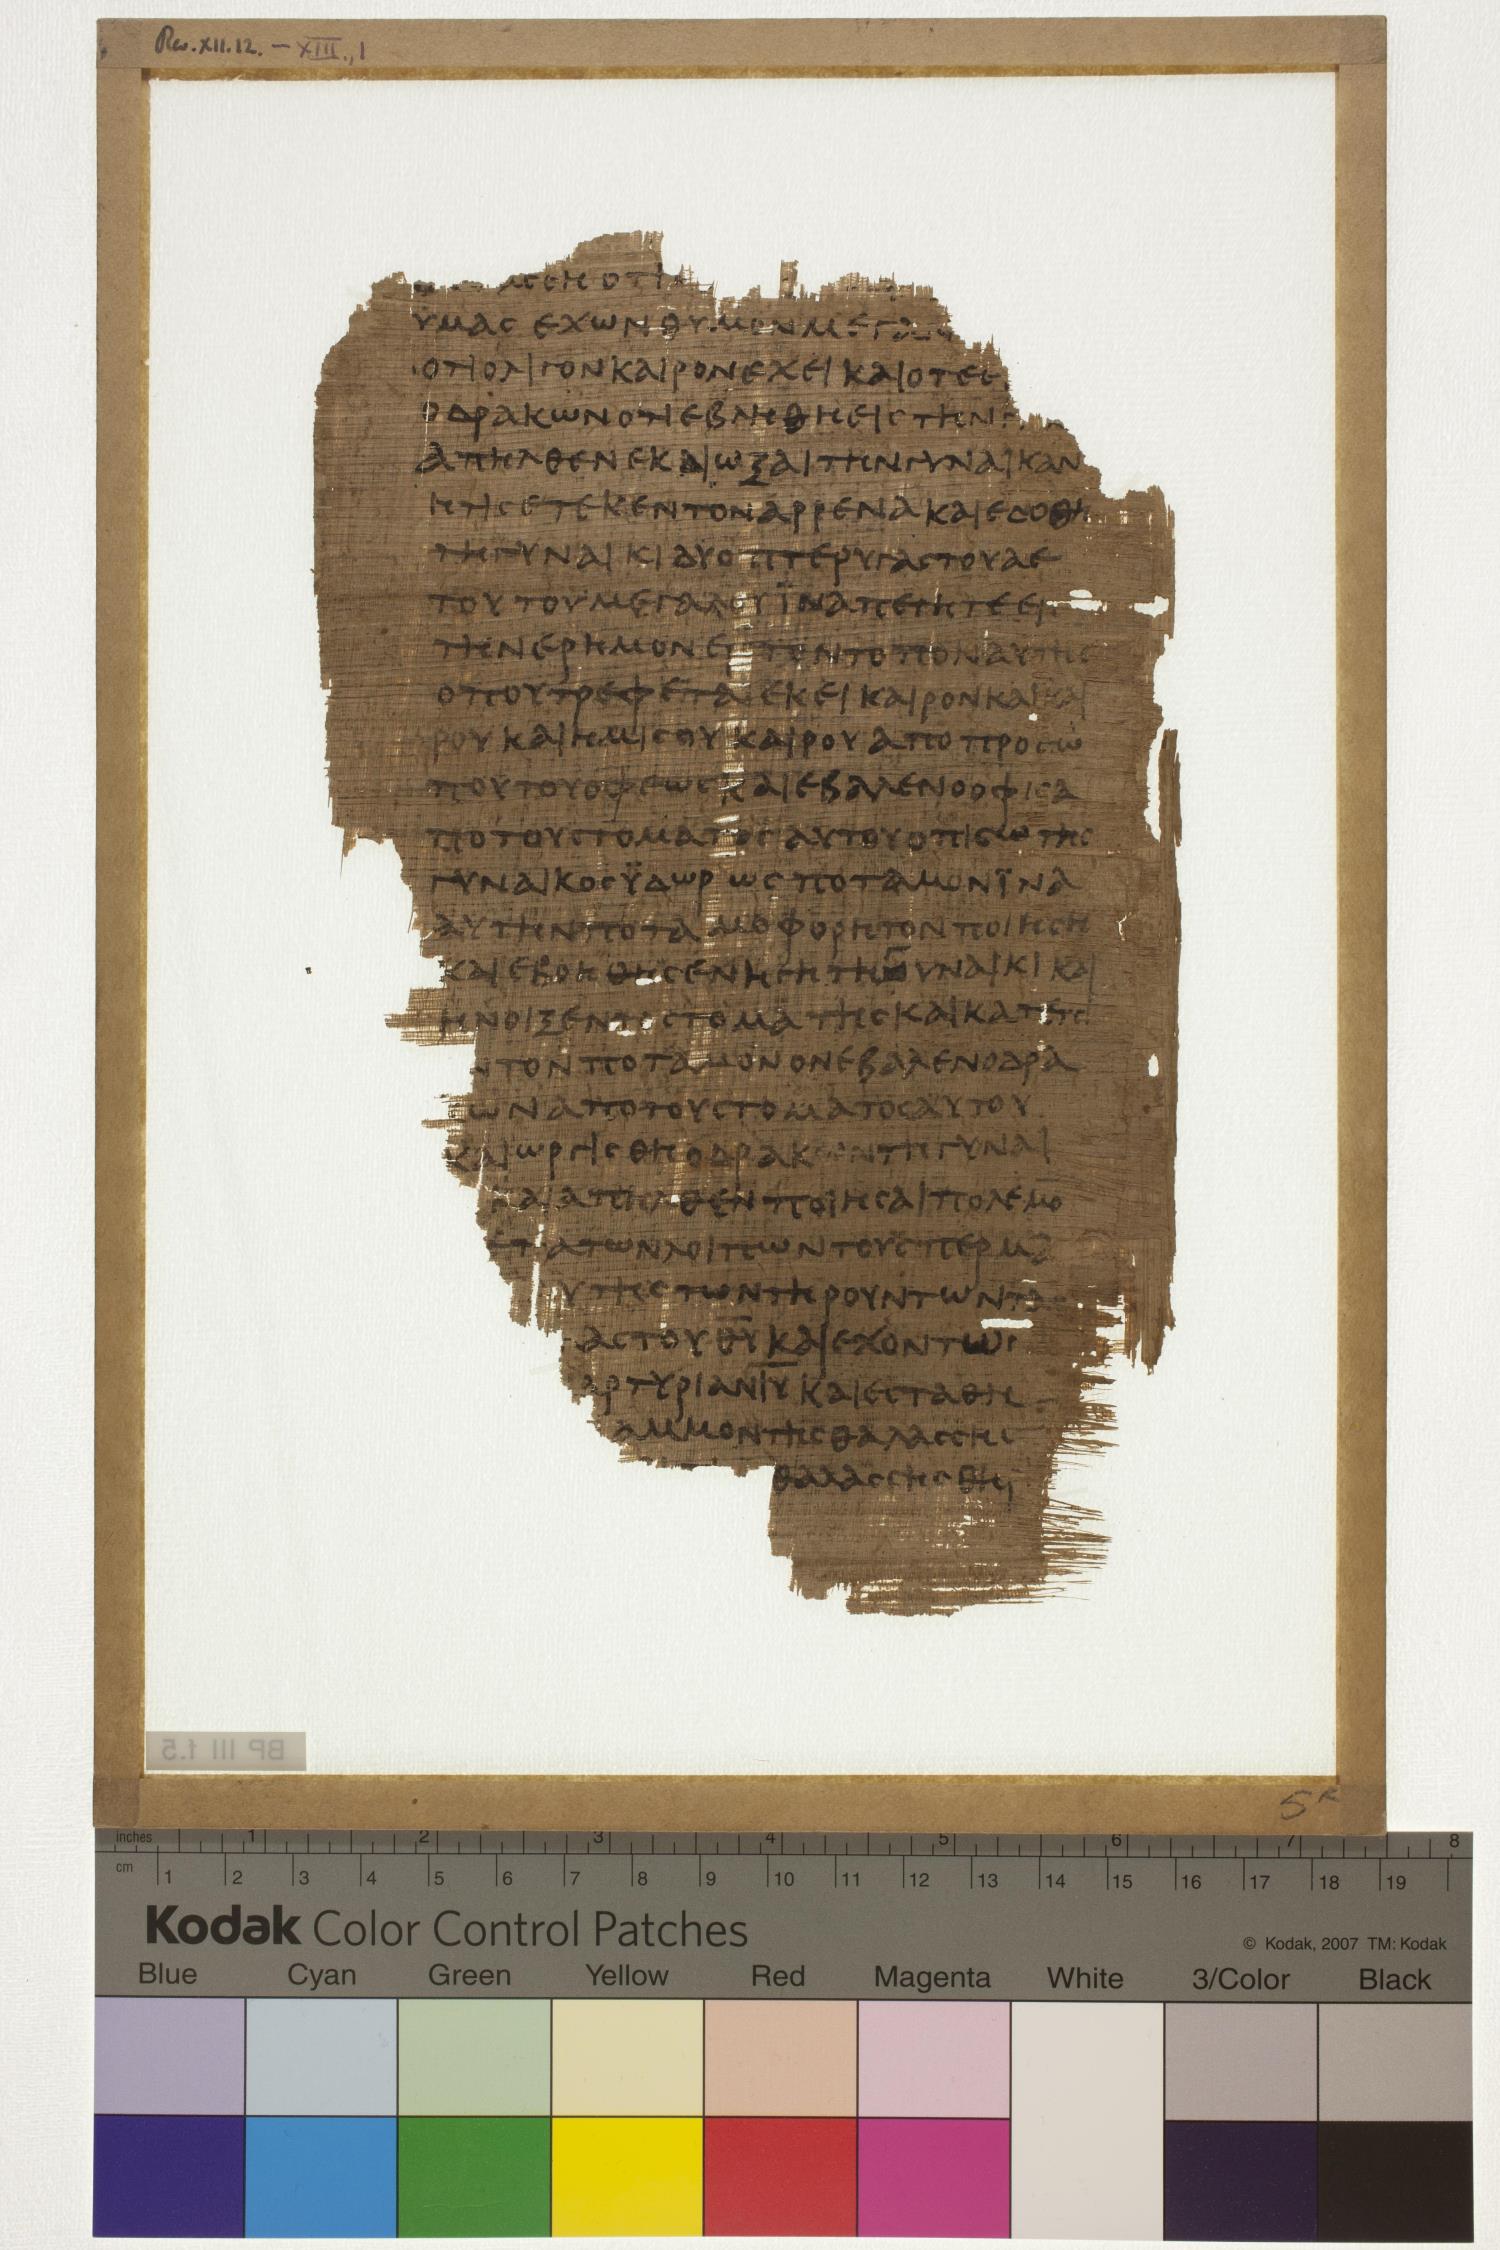 Rev. XII. 12. — XIII., 1
οτι
υμας εχων θυμον μεγα
οτι ολιγον καιρον εχει και οτε ε
ο δρακων οτι εβληθη εις την
απηλθεν εκδιωξαι την γυναικαν
ητις ετεκεν τον αρρενα και εδοθη
τη γυναικι δυο πτερυγας του αε
του του μεγαλου ϊνα πετητε ει
την ερημον ει τον τοπον αυτης
οπου τρεφεται εκει καιρον και και
ρου και ημισου καιρου απο προσω
που του οφεως και εβαλεν ο οφις α
πο του στοματος αυτου οπισω της
γυναικος ϋδωρ ως ποταμον ϊνα
αυτην ποταμοφορητον ποιηση
και εβοηθησεν η γη τη γυναικι και
ηνοιξεν το στομα της και κατεπι
ν τον ποταμον ον εβαλεν ο δρα
ων απο του στοματος αυτου
και ωργισθη ο δρακων τη γυναι
και απηλθεν ποιησαι πολεμο
ετα των λοιπων του σπερμα
υτης των τηρουντων τα
ας του θ̅υ̅ και εχοντων
αρτυριαν ι̅υ̅ και εσταθη
αμμον της θαλασσης
θαλασσης θη
BP III f.5
5 R
inches 1 2 3 4 5 6 7 8
cm 1 2 3 4 5 6 7 8 9 10 11 12 13 14 15 16 17 18 19
Kodak Color Control Patches
© Kodak, 2007 TM: Kodak
Blue Cyan Green Yellow Red Magenta White 3/Color Black